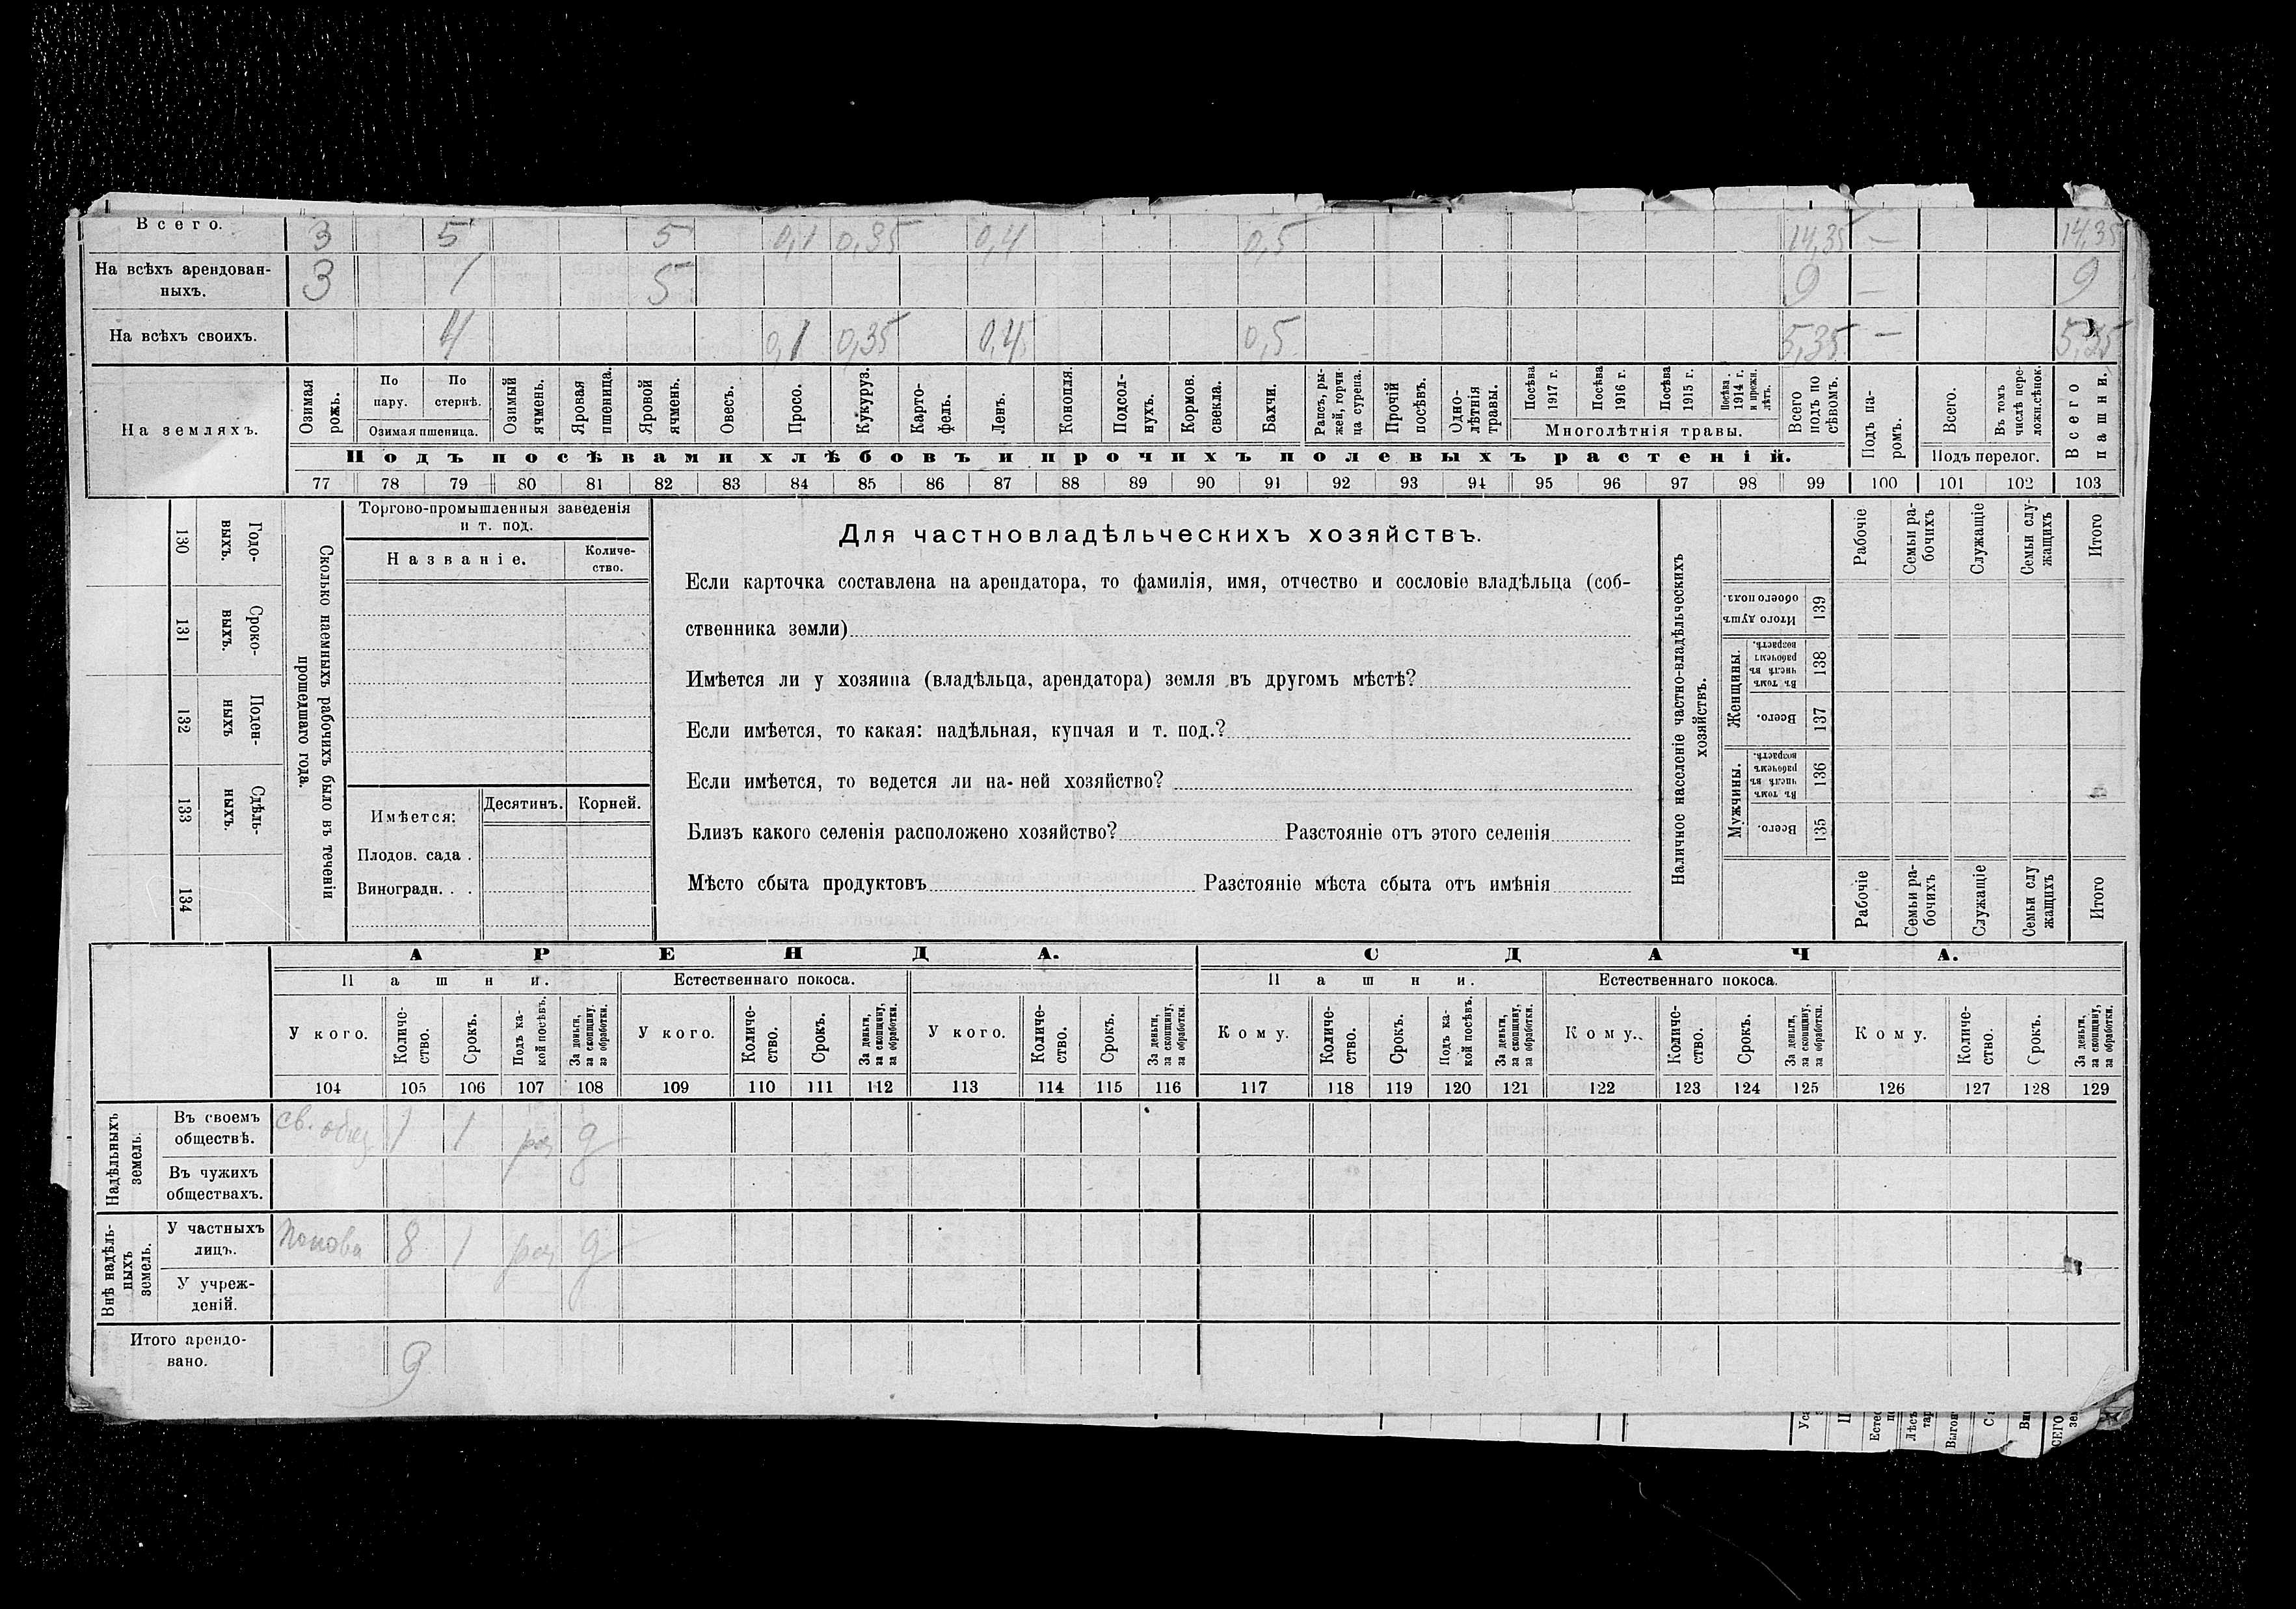 Всего. 3 5 5 0,1 0,35 0,4 0,5 14,35 — 14,35
На всѣхъ арендован-
ныхъ. 3 1 5 9 — 9
На всѣхъ своихъ. 4 0,1 0,35 0,4 0,5 5,35 — 5,35
На земляхъ.
Озимая рожь.
По пару.
По стернѣ.
Озимая пшеница.
Озимый ячмень.
Яровая пшеница.
Яровой ячмень.
Овесъ.
Просо.
Кукуруз.
Карто-
фель.
Ленъ.
Конопля.
Подсол-
нухъ.
Кормов.
свекла.
Бахчи.
Рапсъ, ры-
жей, горчи-
ца сурепа.
Прочій
посѣвъ.
Одно-
лѣтнія
травы.
Посѣва
1917 г.
Посѣва
1916 г.
Посѣва
1915 г.
Посѣва
1914 г.
и прежн.
лѣтъ.
Многолѣтнія травы.
Всего
подъ по
сѣвомъ.
Подъ па-
ромъ.
Всего.
Въ томъ
числѣ пере-
ложн.сѣнок.
Подъ перелог.
Всего
пашни.
Подъ посѣвами хлѣбовъ и прочихъ полевыхъ растеній.
77 78 79 80 81 82 83 84 85 86 87 88 89 90 91 92 93 94 95 96 97 98 99 100 101 102 103
130 Годо-
выхъ.
131 Сроко-
выхъ.
132 Поден-
ныхъ
133 Сдѣль-
ныхъ.
134
Сколько наемныхъ рабочихъ было въ теченіи
прошедшаго года.
Торгово-промышленныя заведенія
и т. под.
Названіе.
Количе-
ство.
Имѣется:
Десятинъ. Корней.
Плодов. сада .
Виноградн. . .
Для частновладѣльческихъ хозяйствъ.
Если карточка составлена на арендатора, то фамилія, имя, отчество и сословіе владѣльца (соб-
ственника земли)
Имѣется ли у хозяина (владѣльца, арендатора) земля въ другомъ мѣстѣ?
Если имѣется, то какая: надѣльная, купчая и т. под.?
Если имѣется, то ведется ли на- ней хозяйство?
Близъ какого селенія расположено хозяйство? Разстояніе отъ этого селенія
Мѣсто сбыта продуктовъ Разстояніе мѣста сбыта отъ имѣнія
Наличное населеніе частно-владѣльческихъ
хозяйствъ.
Рабочіе
Семьи ра-
бочихъ
Служащіе
Семьи слу-
жащихъ
Итого
Итого душъ
обоего пола.
139
Женщины.
Въ томъ
числѣ въ
рабочемъ
возрастѣ.
138
Всего.
137
Мужчины.
Въ томъ
числѣ въ
рабочемъ
возрастѣ.
136
Всего.
135
Рабочіе
Семьи ра-
бочихъ
Служащіе
Семьи слу
жащихъ
Итого
АРЕНДА. СДАЧА.
Пашни. Естественнаго покоса. Пашни. Естественнаго покоса.
У кого.
Количе-
ство.
Срокъ.
Подъ ка-
кой посѣвъ.
За деньги,
за скопщину.
за обработки.
У кого.
Количе-
ство.
Срокъ.
За деньги,
за скопщину,
за обработки.
У кого.
Количе-
ство.
Срокъ.
За деньги,
за скопщину,
за обработки.
Кому.
Количе-
ство.
Срокъ.
Подъ ка-
кой посѣвъ.
За деньги,
за скопщину,
за обработки.
Кому.
Количе-
ство.
Срокъ.
За деньги,
за скопщину,
за обработки.
Кому.
Количе-
ство.
Срокъ.
За деньги,
за скопщину,
за обработки.
104 105 106 107 108 109 110 111 112 113 114 115 116 117 118 119 120 121 122 123 124 125 126 127 128 129
Надѣльныхъ
земель.
Въ своемъ
обществѣ. св. общ 1 1 роз д
Въ чужихъ
обществахъ.
Внѣ надѣль-
ныхъ
земель.
У частныхъ
лицъ. Попова 8 1 роз д
У учреж-
деній.
Итого арендо-
вано. 9